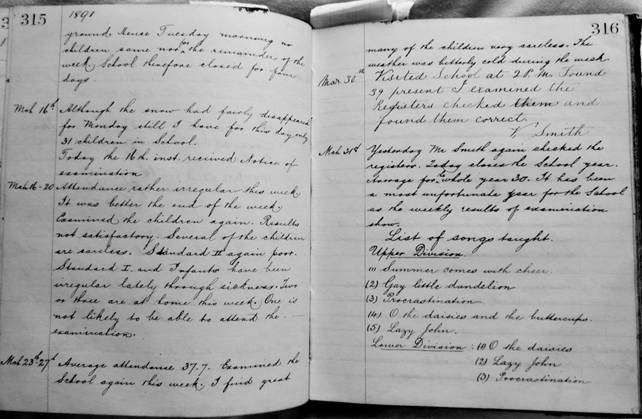 315
1891
ground hence Tuesday morning no
children came nor the remainder of the
week School therefore closed for four
days.
Mch 16th Although the snow had fairly disappeared
for Monday still I have for this day only
31 children in School.
Today the 16th inst. received Notice of
examination
Mch 16-20 Attendance rather irregular this week
It was better the end of the week
Examined the children again. Results
not satisfactory. Several of the children
are careless. Standard II again poor.
Standard I. and Infants have been
irregular lately through sickness. Two
or three are at home this week. One is
not likely to be able to attend the
examination.
Mch 23rd-27th Average attendance 37.7. Examined the
School again this week. I find great
316
many of the children very careless. The
weather was bitterly cold during the week
Mar. 30th Visited School at 2 P.M. Found
39 present I examined the
Registers checked them and
found them correct.
Smith
Mch 31st Yesterday Mr Smith again checked the
registers. Today closes the School year.
Average for the whole year 30. It has been
a most unfortunate year for the School
as the weekly results of examination
show.
List of songs taught.
Upper Division
(1) Summer comes with cheer.
(2) Gay little dandelion
(3) Procrastination
(4) O the daisies and the buttercups.
(5) Lazy John.
Lower Division: (1) O the daisies
(2) Lazy John
(3) Procrastination